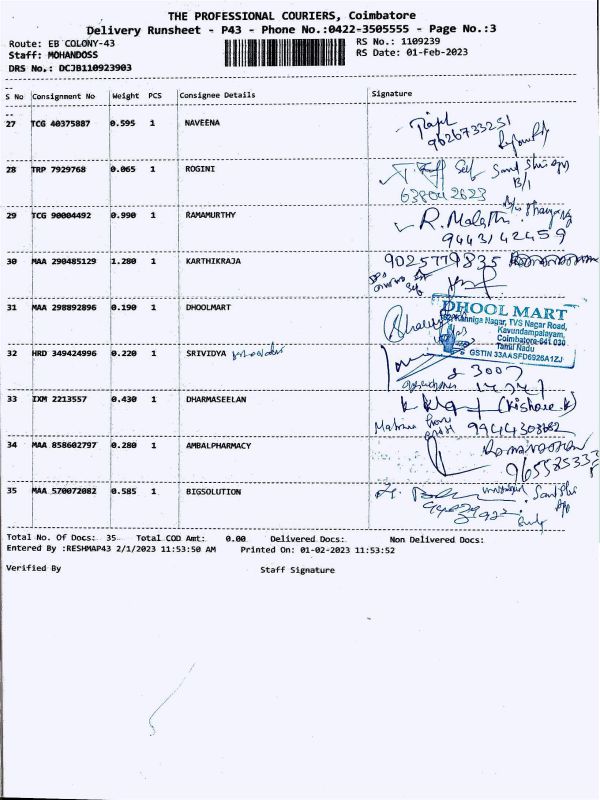 THE PROFESSIONAL COURIERS, Coimbatore
Delivery Runsheet - P43 - Phone No.:0422-3505555 - Page No.:3
Route: EB COLONY-43
RS No.: 1109239
Staff: MOHANDOSS
RS Date: 01-Feb-2023
DRS No.: DCJB110923903
S No Consignment No Weight PCS Consignee Details Signature
27 TCG 40375887 0.595 1 NAVEENA
9626733251
28 TRP 7929768 0.065 1 ROGINI
Self
B/1
29 TCG 90004492 0.990 1 RAMAMURTHY
R. Malathi
9443142459
30 MAA 290485129 1.280 1 KARTHIKRAJA
9025779835
31 MAA 298892896 0.190 1 DHOOLMART
DHOOL MART
Kanniga Nagar, TVS Nagar Road,
Kavundampalayam,
Coimbatore-641 030
Tamil Nadu
GSTIN 33AASFD6926A1ZJ
32 HRD 349424996 0.220 1 SRIVIDYA
33 IXM 2213557 0.430 1 DHARMASEELAN
(Kishore.k)
34 MAA 858602797 0.280 1 AMBALPHARMACY
35 MAA 570072082 0.585 1 BIGSOLUTION
Total No. Of Docs: 35 Total COD Amt: 0.00 Delivered Docs: Non Delivered Docs:
Entered By :RESHMAP43 2/1/2023 11:53:50 AM Printed On: 01-02-2023 11:53:52
Verified By Staff Signature